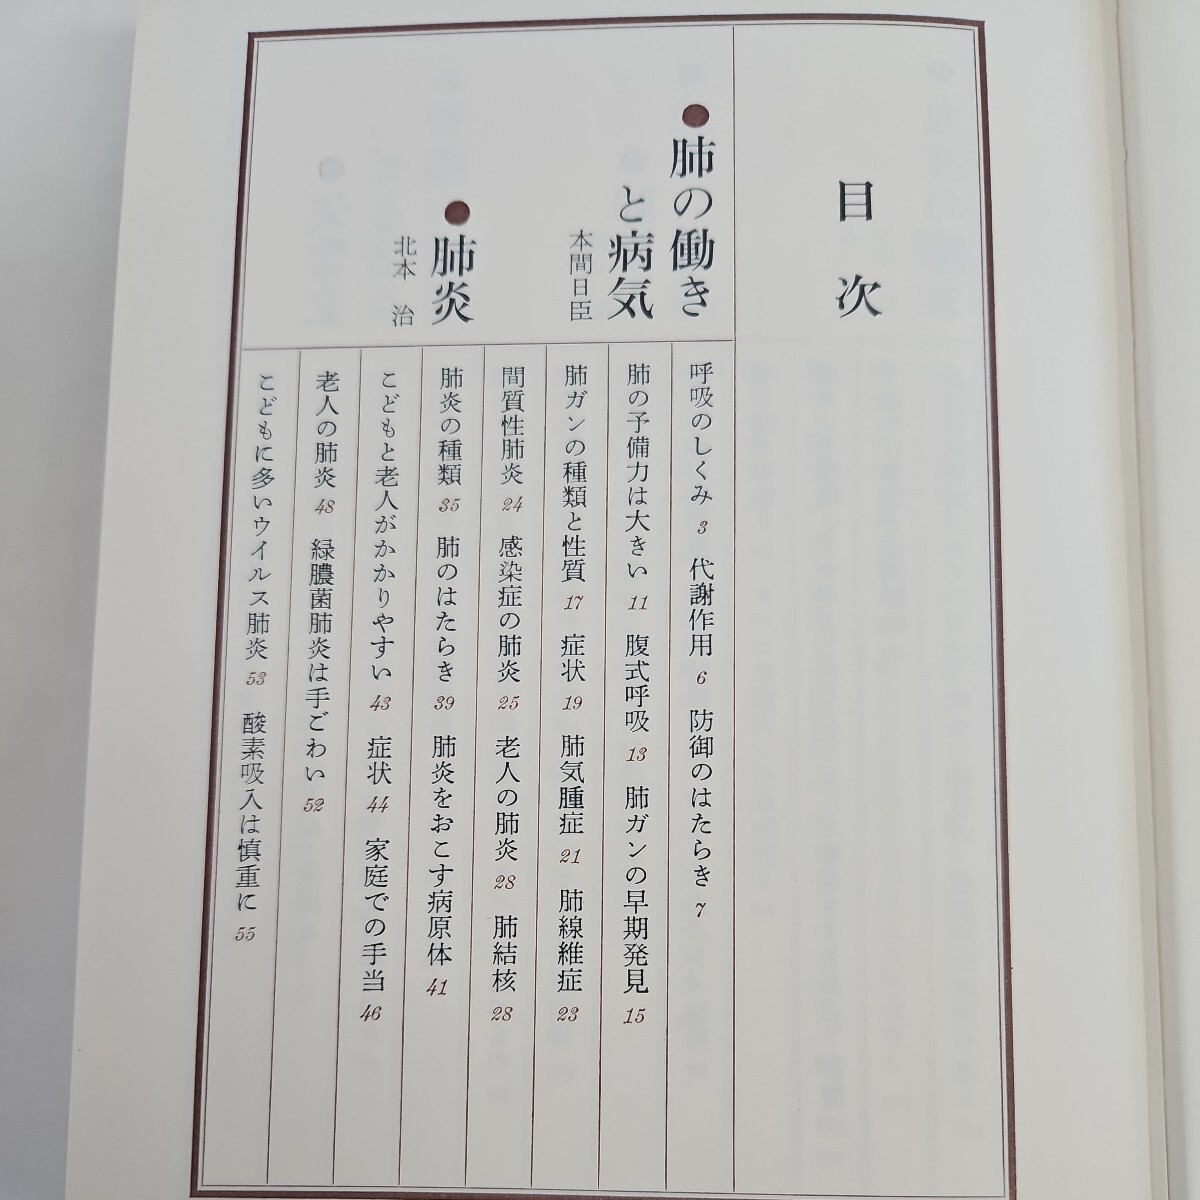 目次
●肺の働き
と病気
本間日臣
呼吸のしくみ 3 代謝作用 6 防御のはたらき 7
肺の予備力は大きい 11 腹式呼吸 13 肺ガンの早期発見 15
肺ガンの種類と性質 17 症状 19 肺気腫症 21 肺線維症 23
間質性肺炎 24 感染症の肺炎 25 老人の肺炎 28 肺結核 28
●肺炎
北本 治
肺炎の種類 35 肺のはたらき 39 肺炎をおこす病原体 41
こどもと老人がかかりやすい 43 症状 44 家庭での手当 46
老人の肺炎 48 緑膿菌肺炎は手ごわい 52
こどもに多いウイルス肺炎 53 酸素吸入は慎重に 55